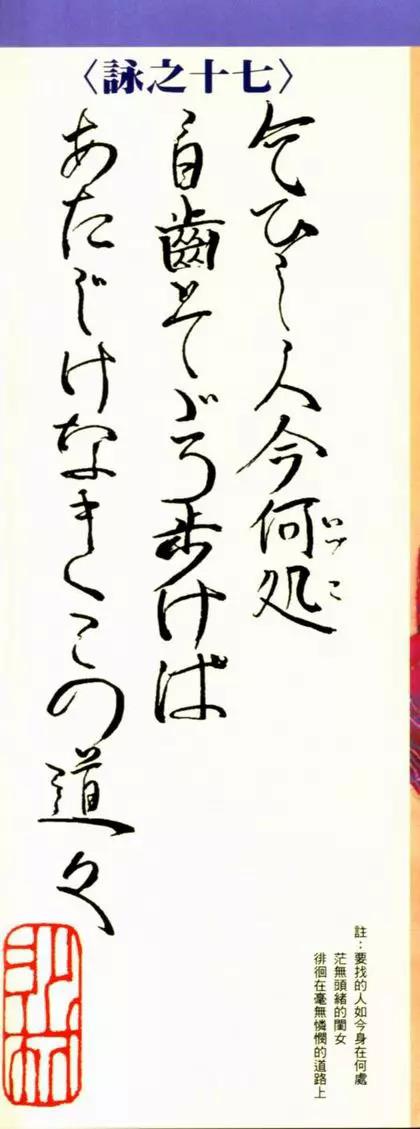 〈詠之十七〉
乞ひし人今何処
いづこ
白齒とてどう歩けば
あたじけなきこの道々
註：要找的人如今身在何處
茫無頭緒的閨女
徘徊在毫無憐憫的道路上